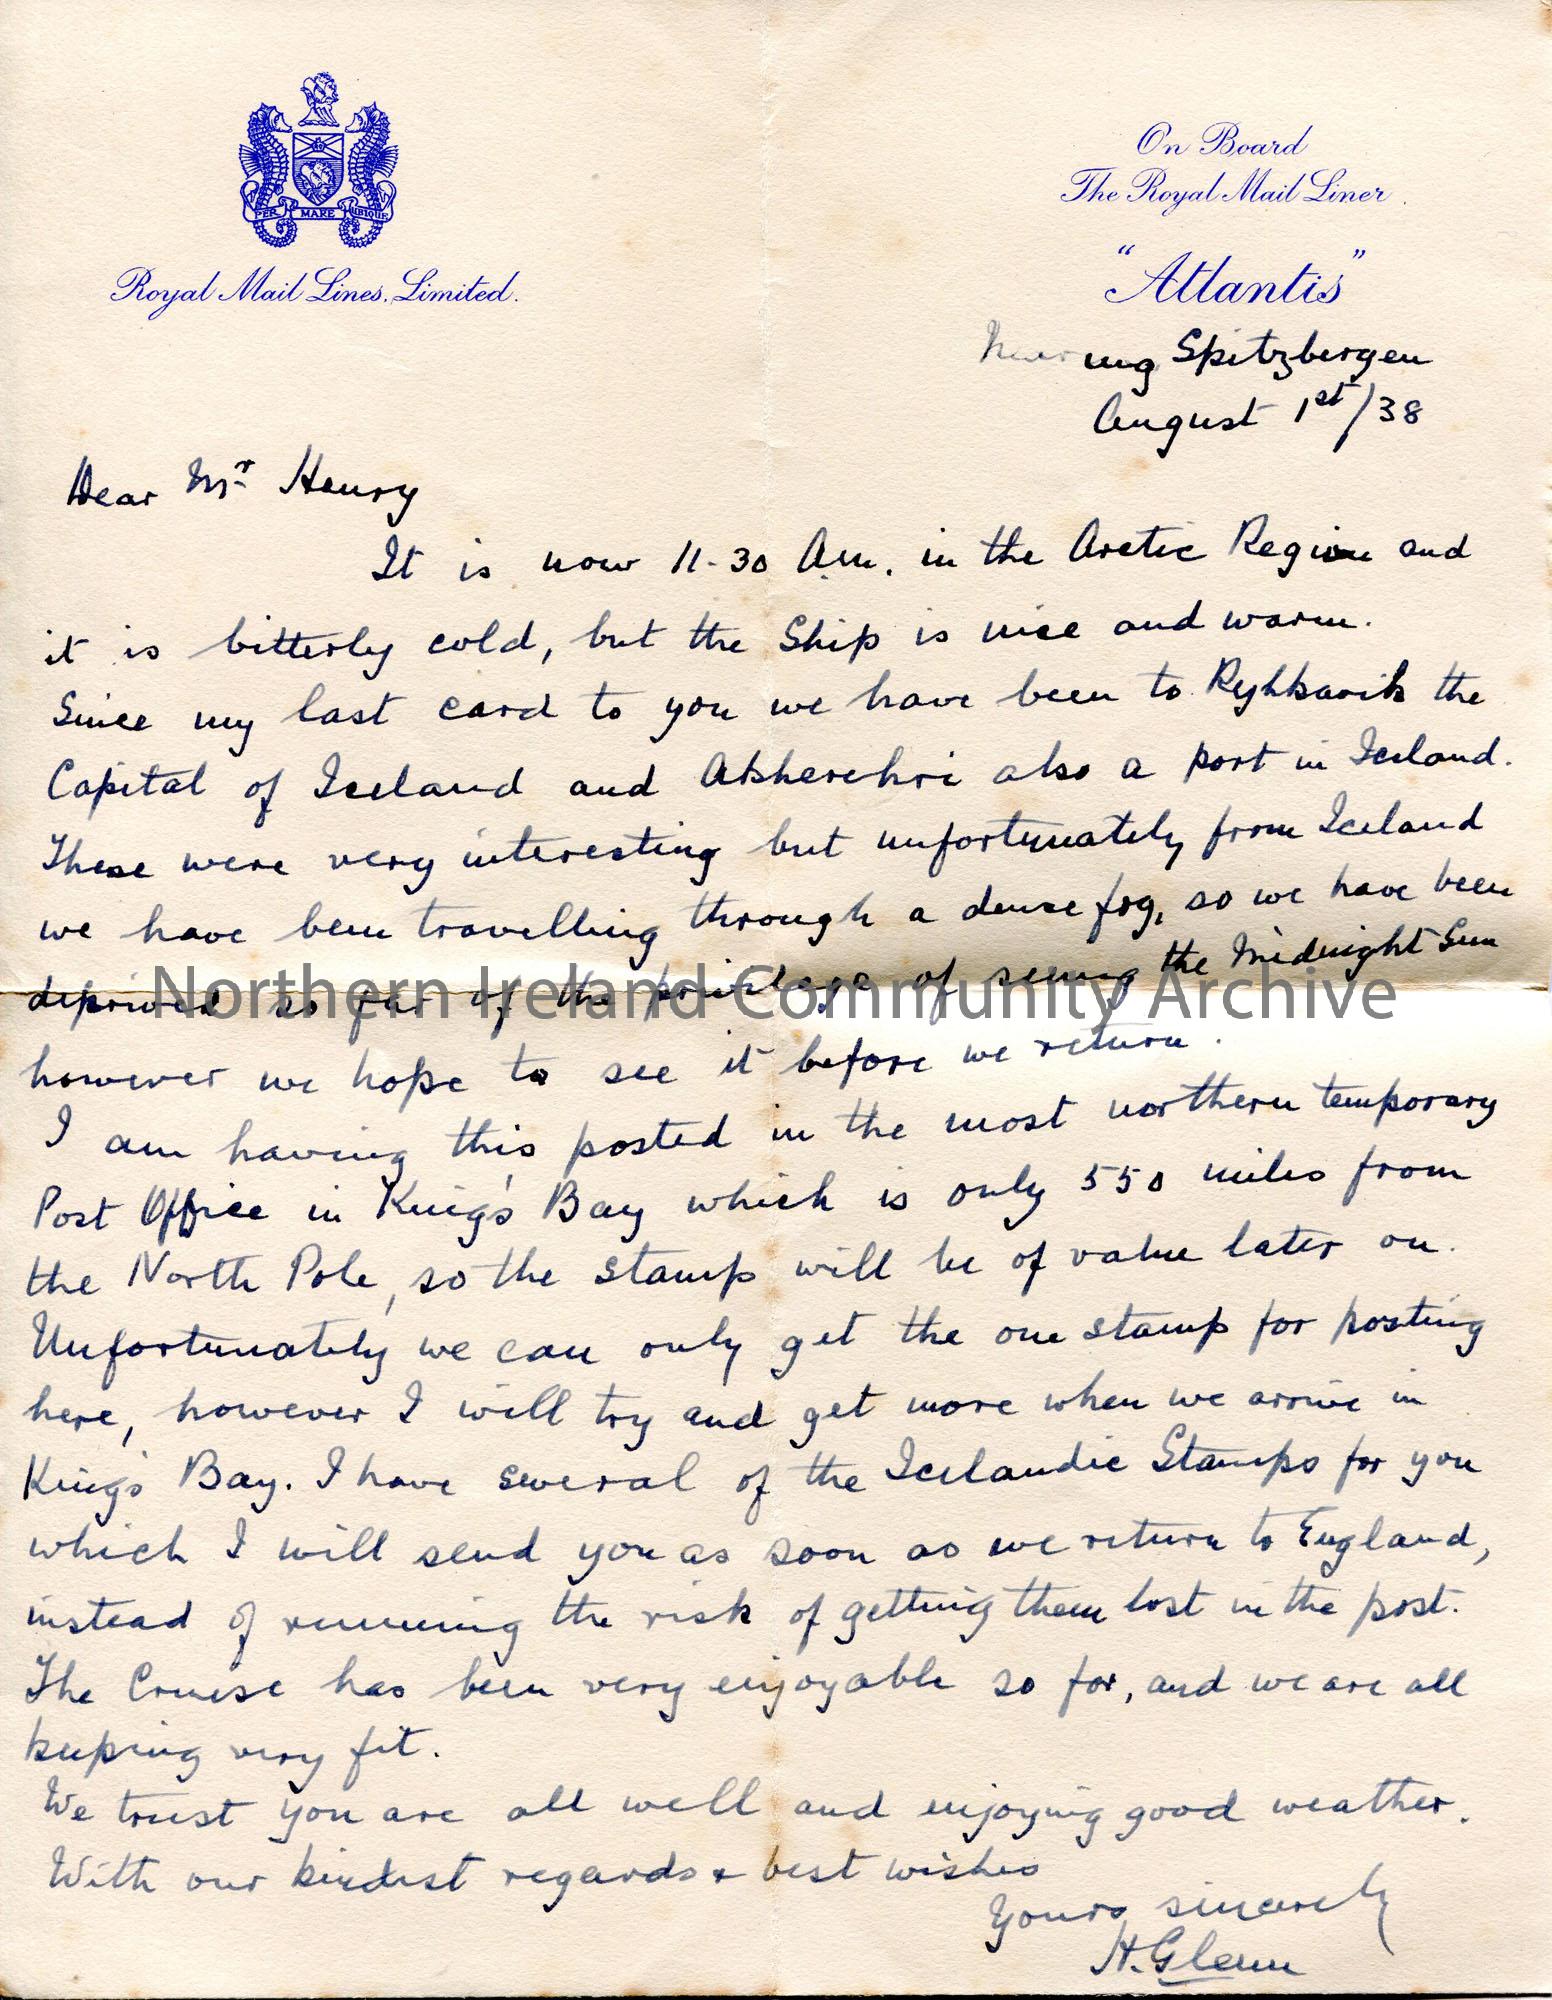 PER MARE UBIQUE
Royal Mail Lines, Limited.
On Board
The Royal Mail Liner
"Atlantis"
Nearing Spitzbergen
August 1st/38
Dear Mr Henry
It is now 11-30 Am. in the Arctic Region and
it is bitterly cold, but the Ship is nice and warm.
Since my last card to you we have been to Rykkavik the
Capital of Iceland and Aksherehri also a port in Iceland.
These were very interesting but unfortunately from Iceland
we have been travelling through a dense fog, so we have been
deprived so far of the privilege of seeing the Midnight Sun
however we hope to see it before we return.
I am having this posted in the most northern temporary
Post Office in King's Bay which is only 550 miles from
the North Pole, so the stamp will be of value later on.
Unfortunately we can only get the one stamp for posting
here, however I will try and get more when we arrive in
King's Bay. I have several of the Icelandic Stamps for you
which I will send you as soon as we return to England,
instead of running the risk of getting them lost in the post.
The Cruise has been very enjoyable so far, and we are all
keeping very fit.
We trust you are all well and enjoying good weather.
With our kindest regards + best wishes
Yours sincerely
H. Glenn
Northern Ireland Community Archive